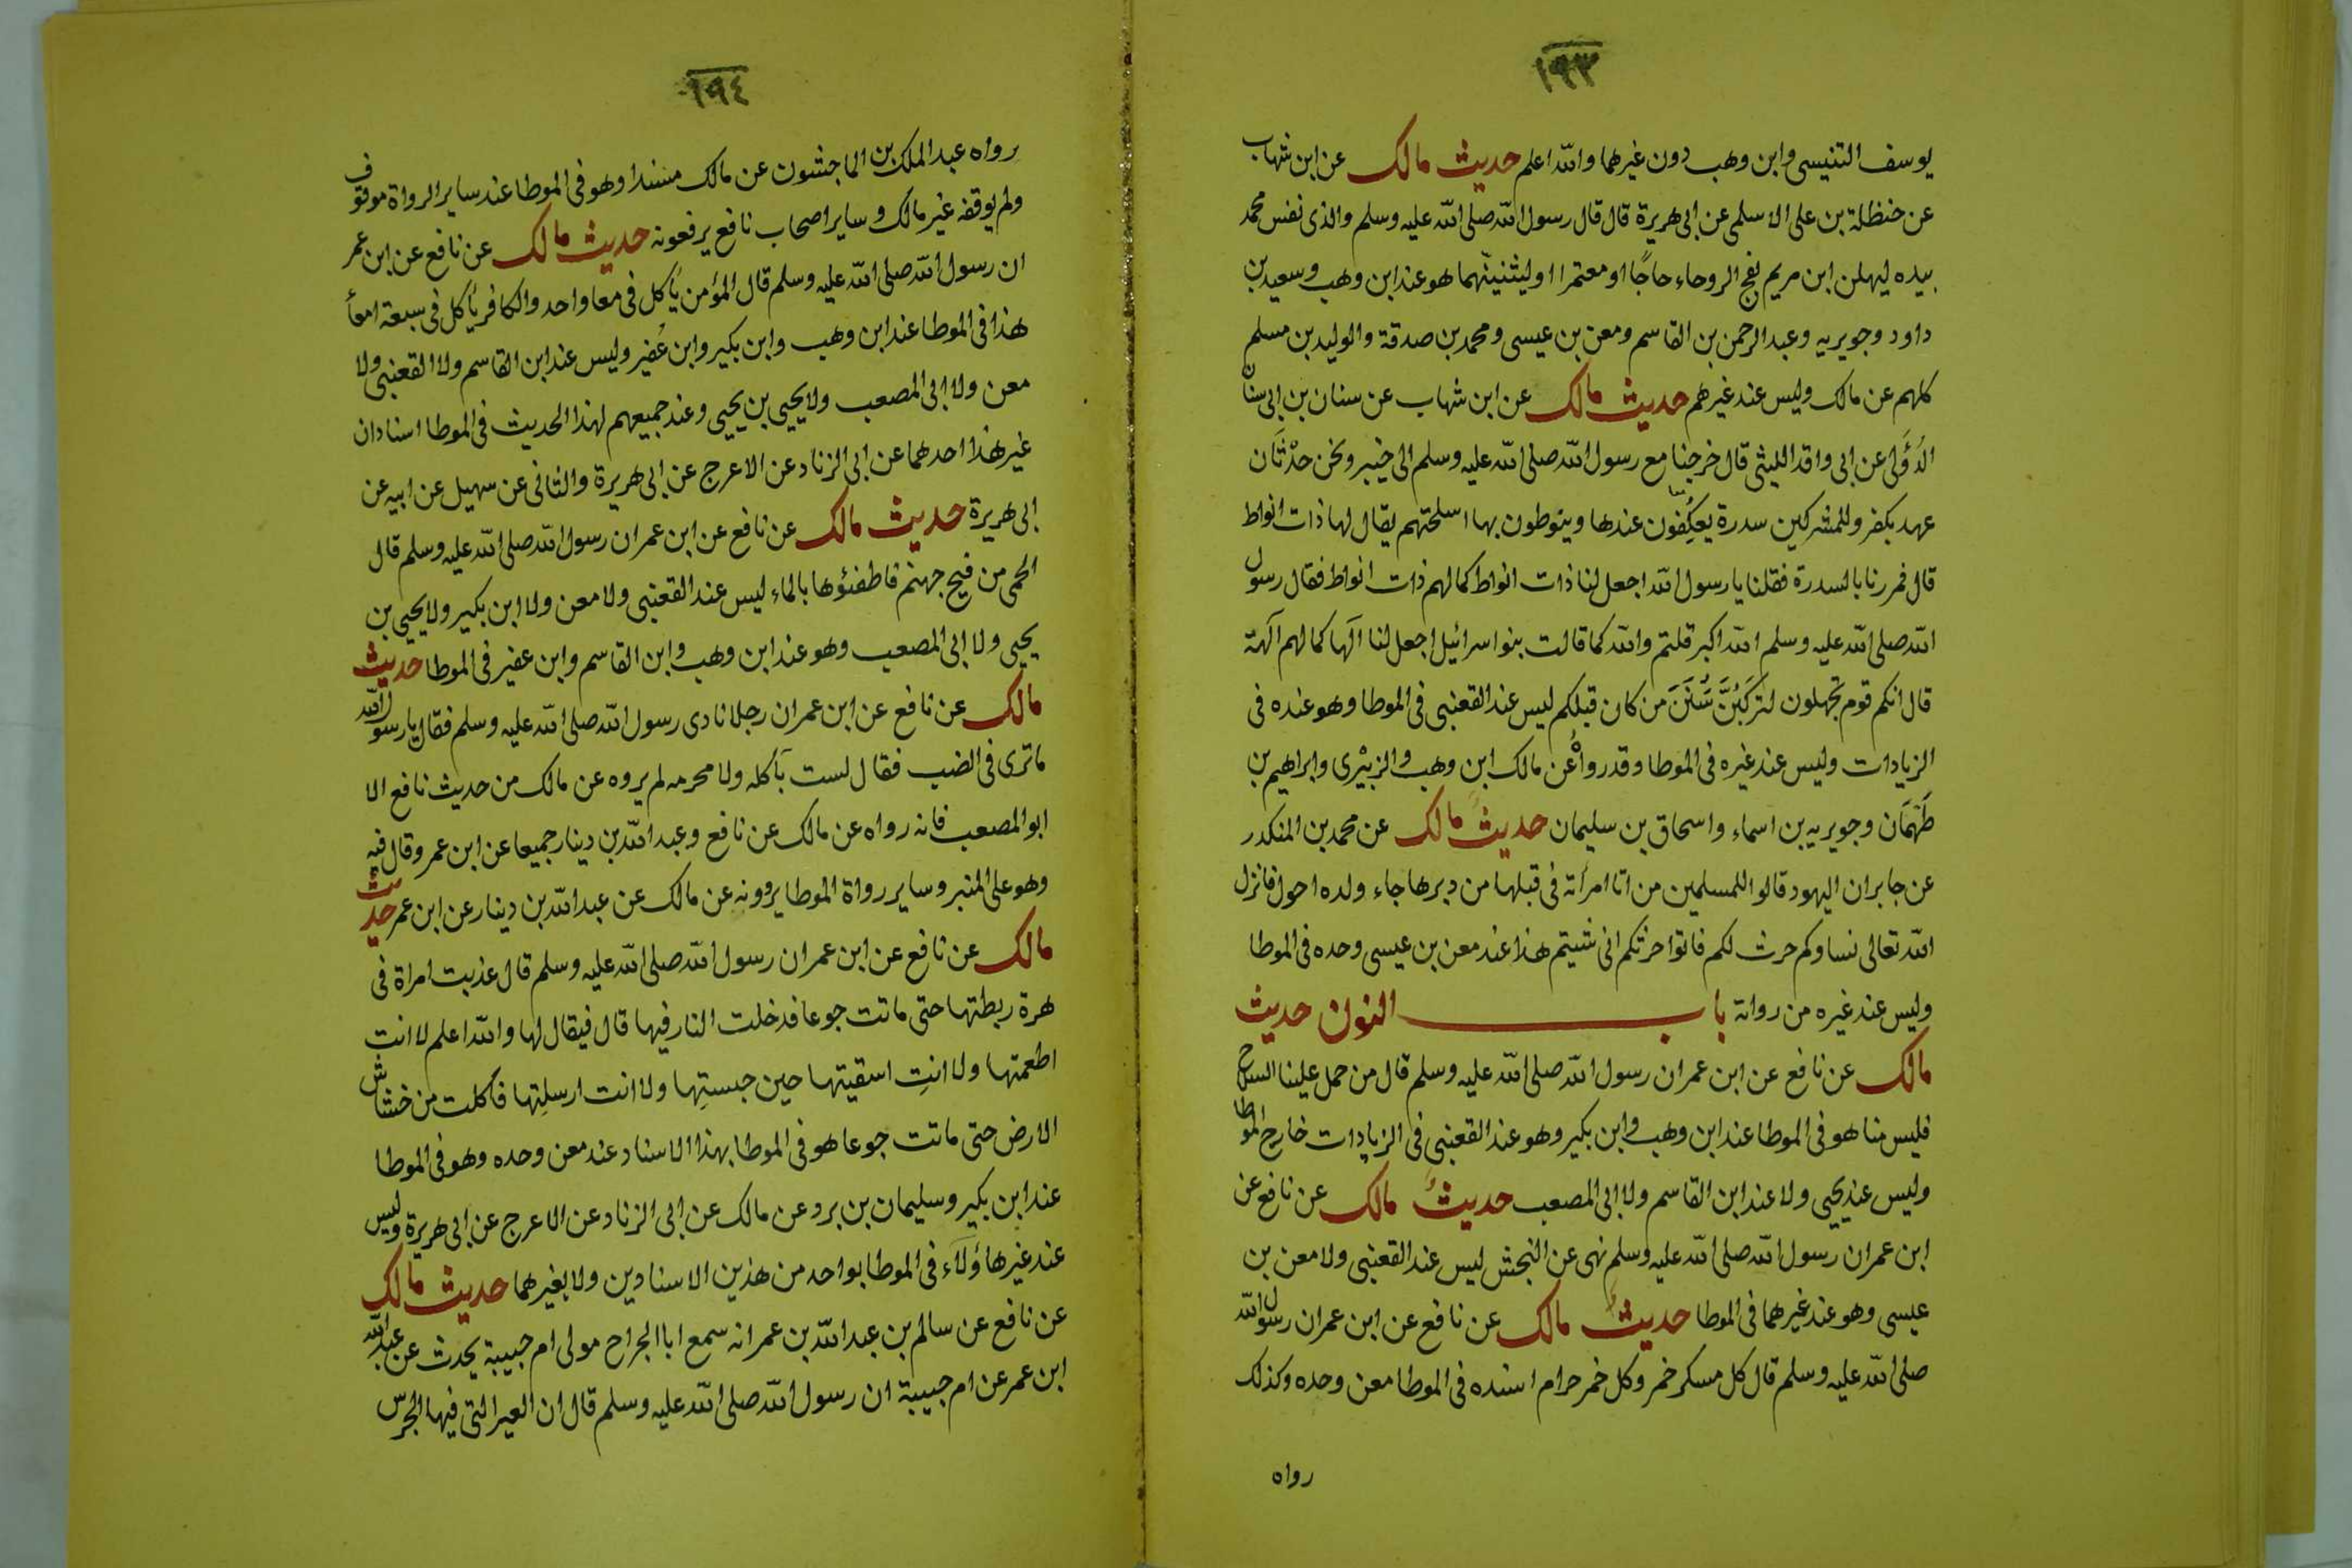 ١٩٣
يوسف التنيسى وابن وهب دون غيرهما والله اعلم حديث مالك عن ابن شهاب
عن حنظلة بن على الاسلمى عن ابى هريرة قال قال رسول الله صلى الله عليه وسلم والذى نفس محمد
بيده ليهلن ابن مريم بفج الروحاء حاجًا او معتمرا او ليثنينّهما هو عند ابن وهب وسعيد بن
داود وجويريه وعبد الرحمن بن القاسم ومعن بن عيسى ومحمد بن صدقة والوليد بن مسلم
كلهم عن مالك وليس عند غيرهم حديث مالك عن ابن شهاب عن سنان بن ابى سنان
الدُؤَلى عن ابى واقد الليثى قال خرجنا مع رسول الله صلى الله عليه وسلم الى خيبر ونحن حدْثَان
عهد بكفر وللمشركين سدرة يعكِفون عندها وينوطون بها اسلحتهم يقال لها ذات انواط
قال فمررنا بالسدرة فقلنا يا رسول الله اجعل لنا ذات انواط كما لهم ذات انواط فقال رسول
الله صلى الله عليه وسلم الله اكبر قلتم والله كما قالت بنو اسرائيل اجعل لنا آلها كما لهم آلهة
قال انكم قوم تجهلون لتركَبُنَّ سُنَنَ من كان قبلكم ليس عند القعنبى فى الموطا وهو عنده فى
الزيادات وليس عند غيره فى الموطا وقد رواهُ عن مالك ابن وهب والزبيْرى وابراهيم بن
طَهْمَان وجويريه بن اسماء واسحاق بن سليمان حديث مالك عن محمد بن المنكدر
عن جابر ان اليهود قالوا للمسلمين من اتا امرأته فى قبلها من دبرها جاء ولده احول فانزل
الله تعالى نساوكم حرث لكم فاتوا حرثكم انى شيتم هذا عند معن بن عيسى وحده فى الموطا
وليس عند غيره من رواته باب النون حديث
مالك عن نافع عن ابن عمران رسول الله صلى الله عليه وسلم قال من حمل علينا السلاح
فليس منا هو فى الموطا عند ابن وهب وابن بكير وهو عند القعنبى فى الزيادات خارج الموطا
وليس عند يحيى ولا عند ابن القاسم ولا ابى المصعب حديثُ مالك عن نافع عن
ابن عمران رسول الله صلى الله عليه وسلم نهى عن النجش ليس عند القعنبى ولا معن بن
عيسى وهو عند غيرهما فى الموطا حديثُ مالك عن نافع عن ابن عمران رسول الله
صلى الله عليه وسلم قال كل مسكر خمر وكل خمر حرام اسنده فى الموطا معن وحده وكذلك
رواه
١٩٤
رواه عبد الملك بن الماجشون عن مالك مسندا وهو فى الموطا عند ساير الرواة موقوف
ولم يوقفه غير مالك وساير اصحاب نافع يرفعونه حديث مالك عن نافع عن ابن عمر
ان رسول الله صلى الله عليه وسلم قال المؤمن يأكل فى معا واحد والكافر يأكل فى سبعة امعأ
هذا فى الموطا عند ابن وهب وابن بكير وابن عُفير وليس عند ابن القاسم ولا القعنبى ولا
معن ولا ابى المصعب ولا يحيى بن يحيى وعند جميعهم لهذا الحديث فى الموطا اسنادان
غير هذا احدهما عن ابى الزناد عن الاعرج عن ابى هريرة والثانى عن سهيل عن ابيه عن
ابى هريرة حديث مالك عن نافع عن ابن عمران رسول الله صلى الله عليه وسلم قال
الحمى من فيح جهنم فاطفئوها بالماء ليس عند القعنبى ولا معن ولا ابن بكير ولا يحيى بن
يحيى ولا ابى المصعب وهو عند ابن وهب وابن القاسم وابن عفير فى الموطا حديث
مالك عن نافع عن ابن عمران رجلا نادى رسول الله صلى الله عليه وسلم فقال يا رسول الله
ما ترى فى الضب فقال لست بآكله ولا محرمه لم يروه عن مالك من حديث نافع الا
ابو المصعب فانه رواه عن مالك عن نافع وعبد الله بن دينار جميعا عن ابن عمر وقال فيه
وهو على المنبر وساير رواة الموطا يروونه عن مالك عن عبد الله بن دينار عن ابن عمر حديث
مالك عن نافع عن ابن عمران رسول الله صلى الله عليه وسلم قال عذبت امراة فى
هرة ربطتها حتى ماتت جوعا فدخلت النار فيها قال فيقال لها والله اعلم لا انت
اطعمتها ولا انتِ اسقيتها حين حبستِها ولا انت ارسلتِها فاكلت من خشاش
الارض حتى ماتت جوعا هو فى الموطا بهذا الاسناد عند معن وحده وهو فى الموطا
عند ابن بكير وسليمان بن برد عن مالك عن ابى الزناد عن الاعرج عن ابى هريرة وليس
عند غير هاؤلآء فى الموطا بواحد من هذين الاسنادين ولا بغيرهما حديث مالك
عن نافع عن سالم بن عبد الله بن عمر انه سمع ابا الجراح مولى ام حبيبة يحدث عن عبد الله
ابن عمر عن ام حبيبة ان رسول الله صلى الله عليه وسلم قال ان العير التى فيها الجرس